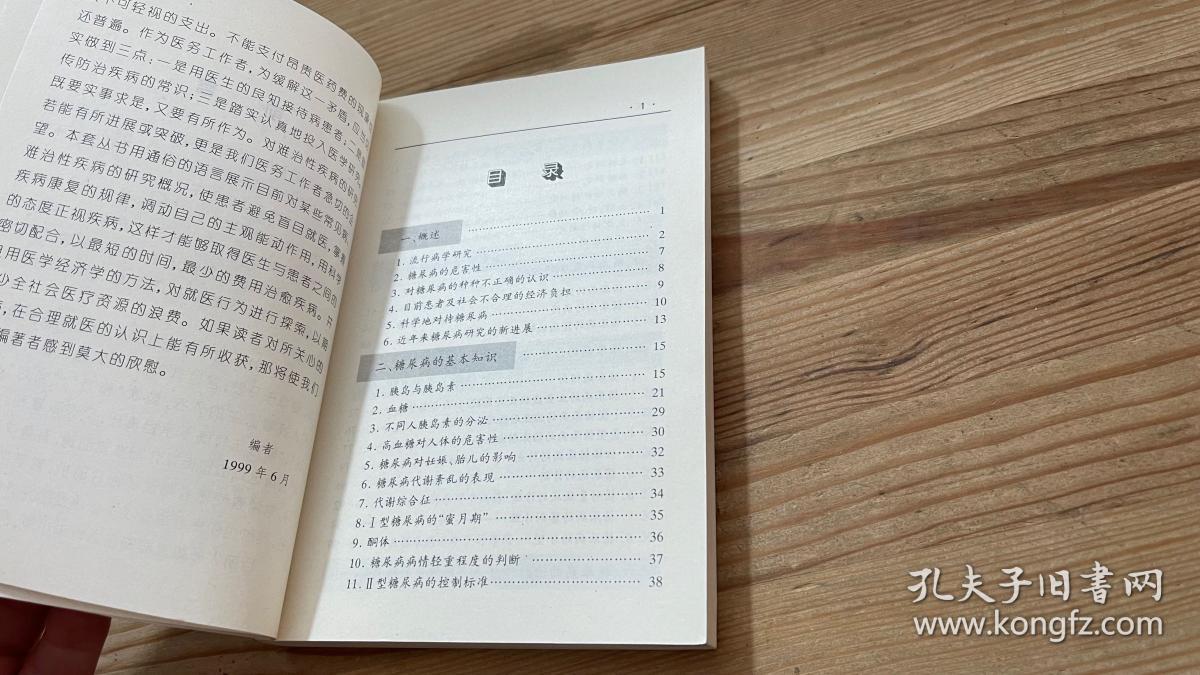 不可轻视的支出。不能支付昂贵医药费的现象
还普遍。作为医务工作者,为缓解这一矛盾,应当
实做到三点:一是用医生的良知接待病患者;二是
传防治疾病的常识;三是踏实认真地投入医学研究
既要实事求是,又要有所作为。对难治性疾病的研究
若能有所进展或突破,更是我们医务工作者急切的
望。本套丛书用通俗的语言展示目前对某些常见病
难治性疾病的研究概况,使患者避免盲目就医,掌握
疾病康复的规律,调动自己的主观能动作用,用科学
的态度正视疾病,这样才能够取得医生与患者之间的
密切配合,以最短的时间,最少的费用治愈疾病。并
用医学经济学的方法,对就医行为进行探索,以减
少全社会医疗资源的浪费。如果读者对所关心的
,在合理就医的认识上能有所收获,那将使我们
编著者感到莫大的欣慰。
编者
1999年6月
·1·
目 录
一、概述 1
1. 流行病学研究 2
2. 糖尿病的危害性 7
3. 对糖尿病的种种不正确的认识 8
4. 目前患者及社会不合理的经济负担 9
5. 科学地对待糖尿病 10
6. 近年来糖尿病研究的新进展 13
二、糖尿病的基本知识 15
1. 胰岛与胰岛素 15
2. 血糖 21
3. 不同人胰岛素的分泌 29
4. 高血糖对人体的危害性 30
5. 糖尿病对妊娠、胎儿的影响 32
6. 糖尿病代谢紊乱的表现 33
7. 代谢综合征 34
8. Ⅰ型糖尿病的“蜜月期” 35
9. 酮体 36
10. 糖尿病病情轻重程度的判断 37
11. Ⅱ型糖尿病的控制标准 38
孔夫子旧书网
www.kongfz.com